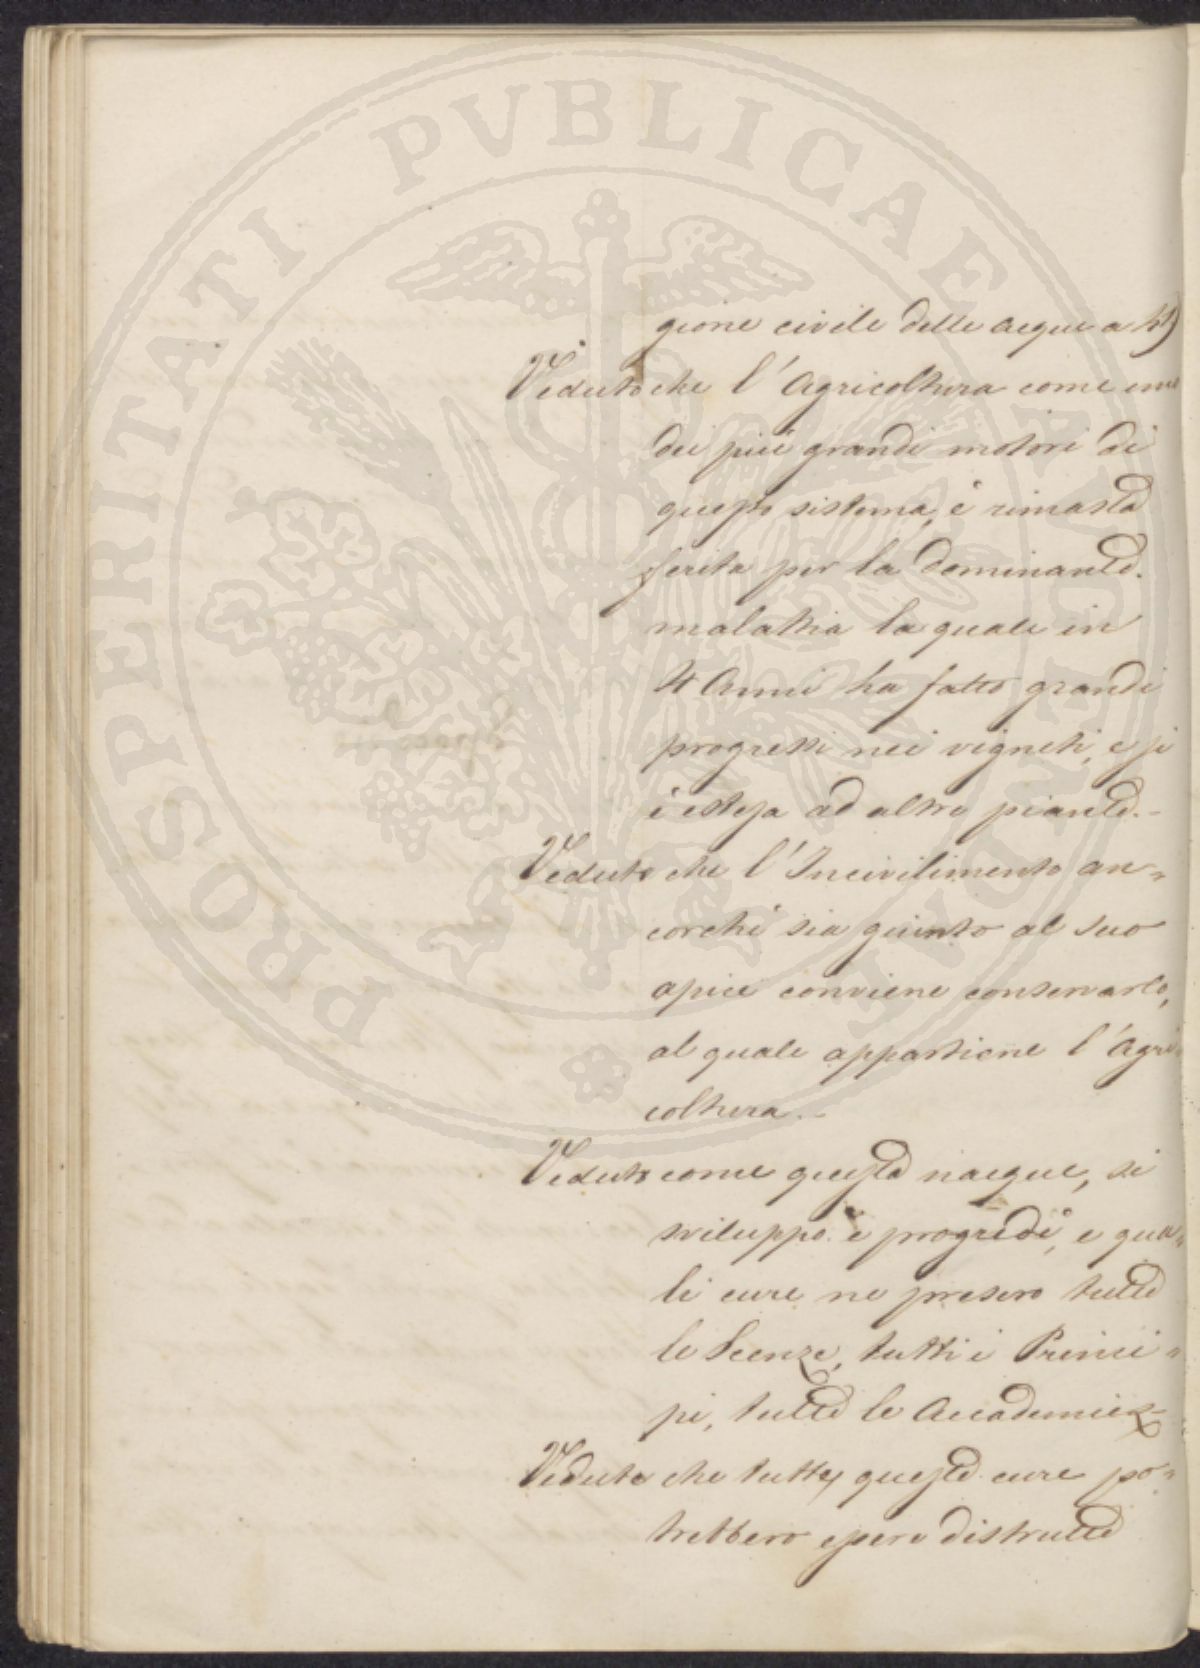 PROSPERITATI PVBLICAE AVGENDAE
gione civile delle acque a
Veduto che l'Agricoltura come uno
dei più grandi motori di
questo sistema, è rimasta
ferita per la dominante.
malattia la quale in
4 Anni ha fatto grandi
progressi nei vigneti, e si
è estesa ad altre piante.-
Veduto che l'Incivilimento an=
corchè sia giunto al suo
apice conviene conservarlo,
al quale appartiene l'agri=
coltura.-
Veduto come questa nacque, si
sviluppò e progredì, e qua=
li cure ne presero tutte
le Scenze, tutti i Princi=
pi, tutte le Accademie
Veduto che tutte queste cure po=
trebbero essere distrutte